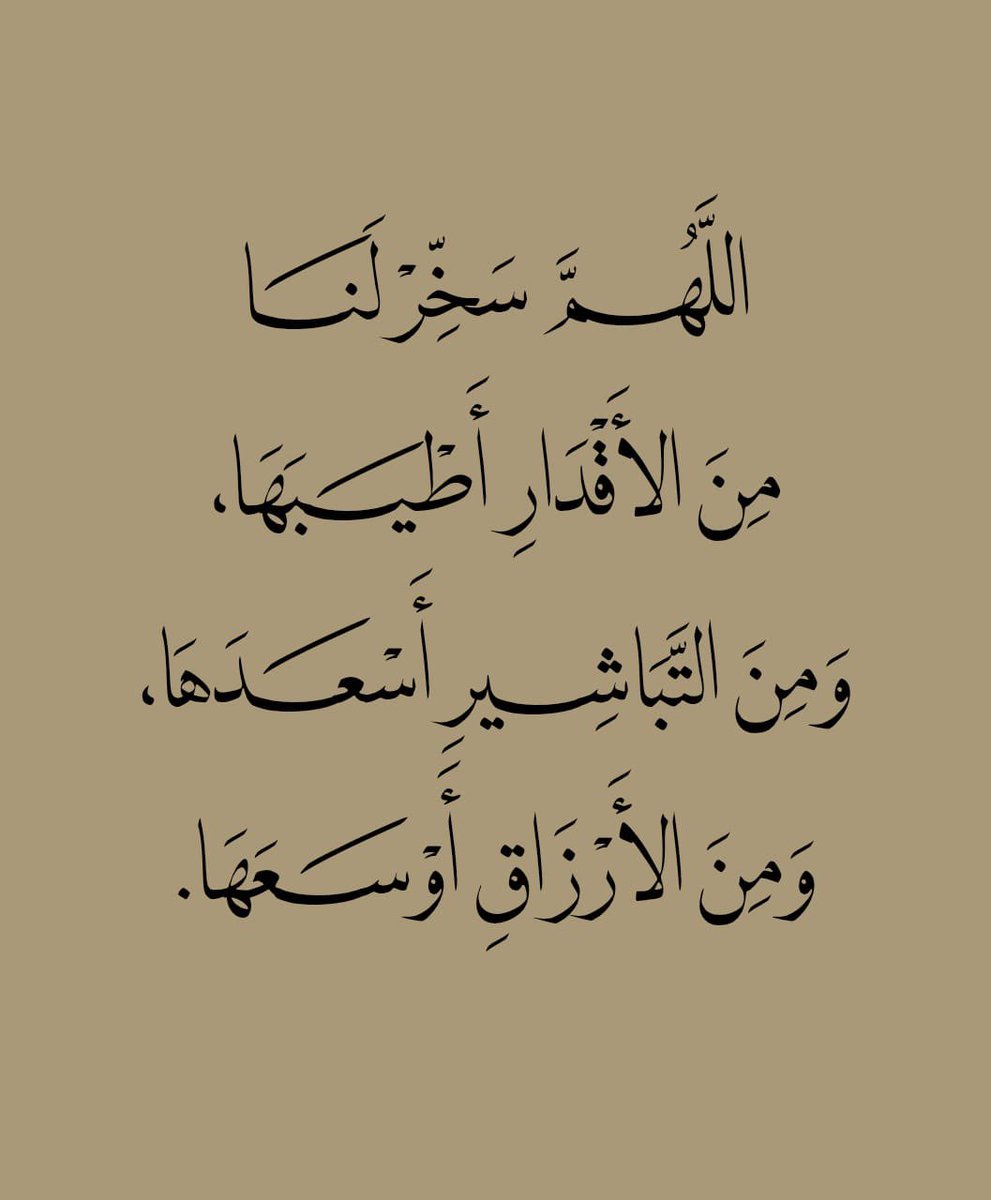 اللَّهُمَّ سَخِّرْ لَنَا
مِنَ الأَقْدَارِ أَطْيَبَهَا،
وَمِنَ التَّبَاشِيرِ أَسْعَدَهَا،
وَمِنَ الأَرْزَاقِ أَوْسَعَهَا.